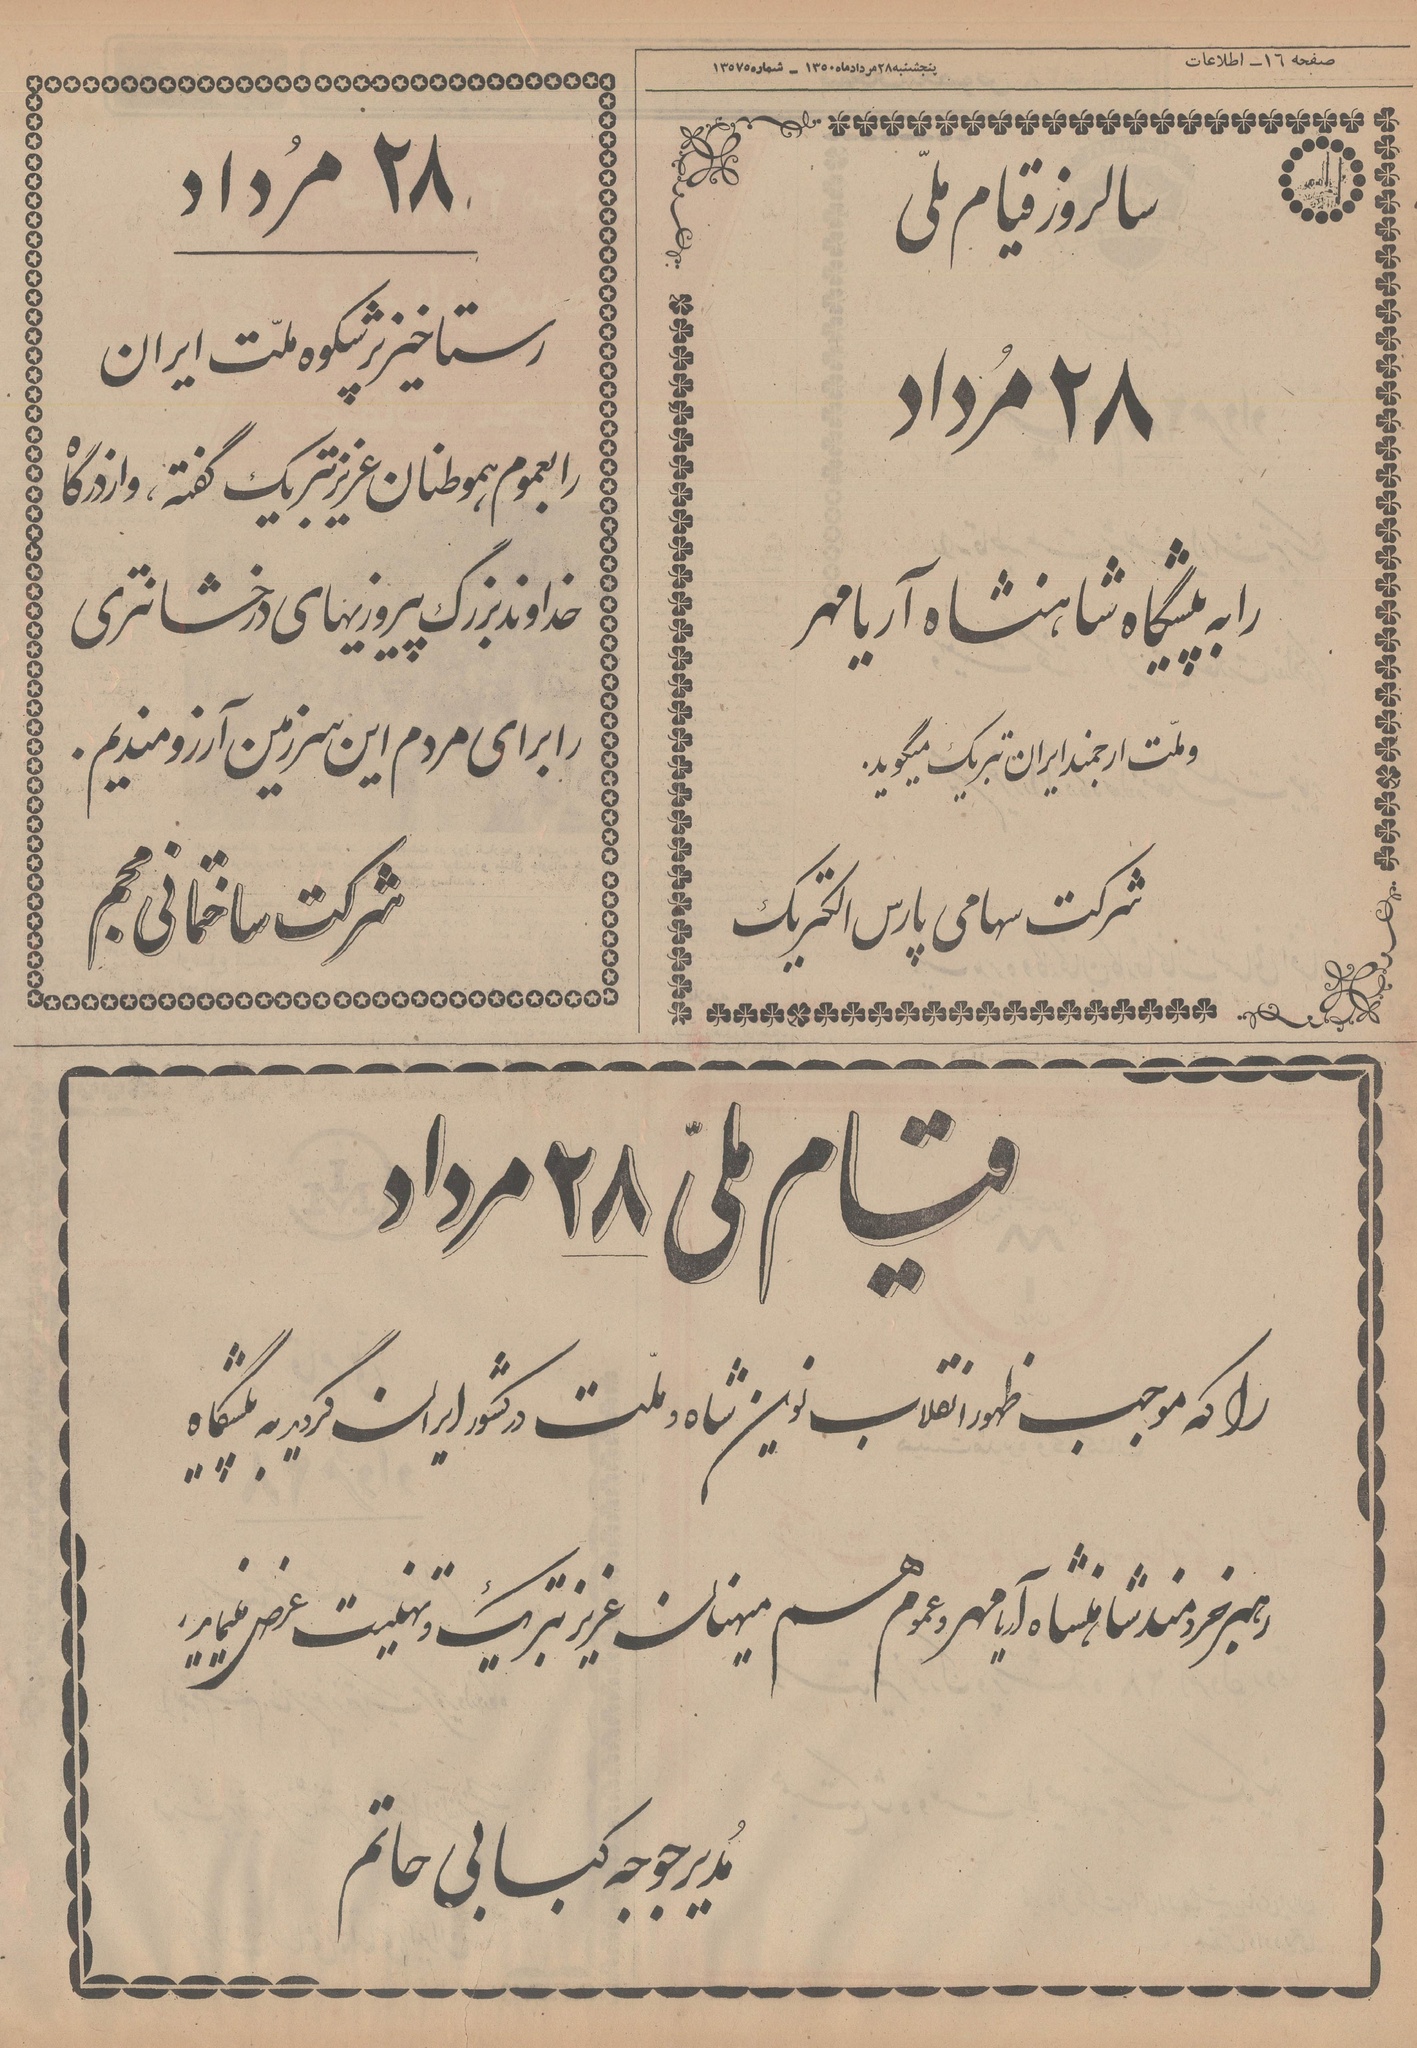 صفحه ١٦ـ اطلاعات
پنجشنبه ٢٨ مرداد ماه ١٣٥٠ ـ شماره ١٣٥٧٥
سالروز قیام ملّی
٢٨ مُرداد
را به پیشگاه شاهنشاه آریامهر
و ملّت ارجمند ایران تبریک میگوید.
شرکت سهامی پارس الکتریک
٢٨ مُرداد
رستاخیز پرشکوه ملّت ایران
را بعموم هموطنان عزیز تبریک گفته، و از درگاه
خداوند بزرگ پیروزیهای درخشانتری
را برای مردم این سرزمین آرزومندیم.
شرکت ساختمانی مجم
قیام ملّی ٢٨ مرداد
را که موجب ظهور انقلاب نوین شاه و ملّت در کشور ایران گردید به پیشگاه
رهبر خردمند شاهنشاه آریامهر و عموم هم میهنان عزیز تبریک و تهنیت عرض مینماید،
مُدیر جوجه کبابی حاتم